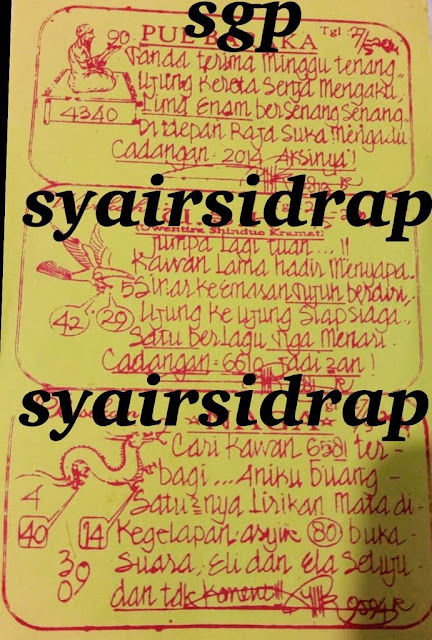 sgp
90 PUL Tgl: 27/5
Tanda terima Minggu tenang,,
Ujung Kereta Senja Mengaku,
Lima Enam bersenang senang
4340
Di depan Raja Suka Mengadu
Cadangan: 2014 Aksinya!
syairsidrap
(Owentira Shinduo Kramat)
Jumpa lagi tuan...!!
Kawan Lama hadir Menyapa.
5 Sinar keemasan tujuh berdiri,.
42 29 Ujung Ke ujung Siap siaga..
Satu berlagu Tiga Menari.
Cadangan = 6510 Jadi an!
syairsidrap
Cari Kawan 6581 ter-
bagi... Aniku buang -
4 Satu2nya Lirikan Mata di-
40 14 Kegelapan asyik 80 buka -
Suara, Eli dan Ela Setuju-
3 09 0
dan tdk Koment!!! 9594 K